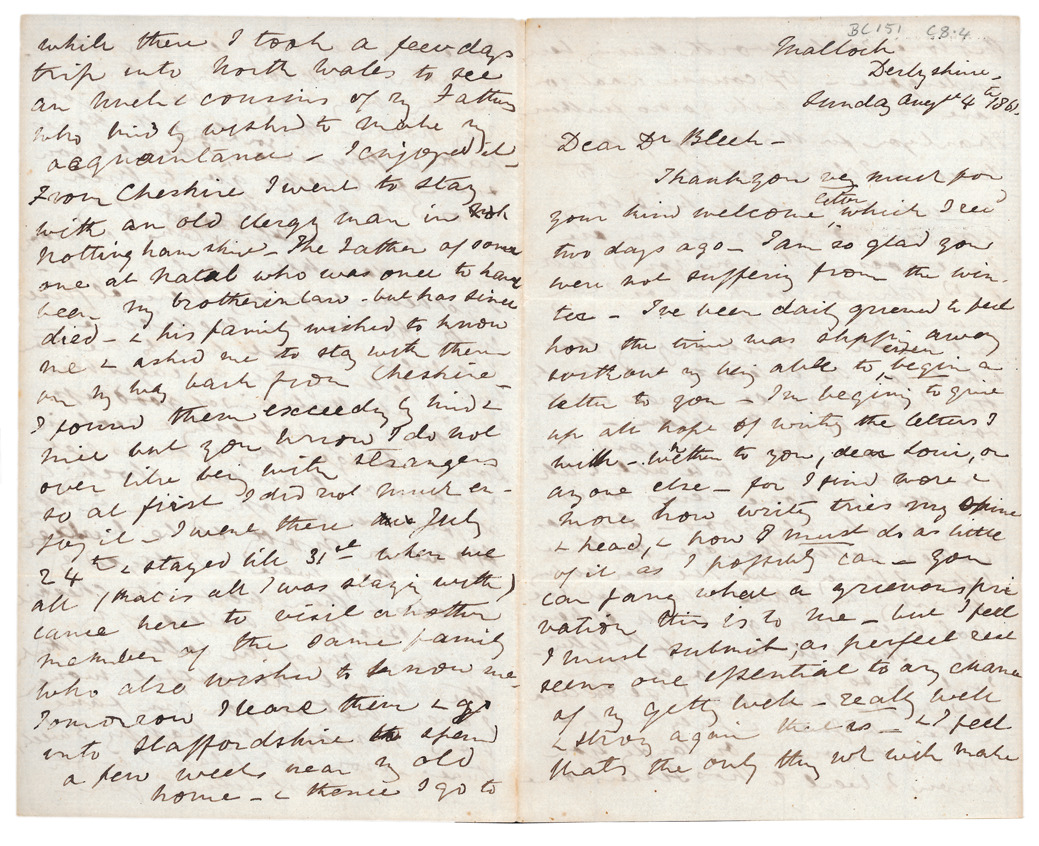 BC151 C8:4
Matlock
Derbyshire -
Sunday Augst 4th 1861.
Dear Dr Bleek -
Thank you vy much for
your kind welcome letter which I recd
two days ago - I am so glad you
were not suffering from the win-
ter - I've been daily grieved to feel
how the time was slippg away
without my beg able to even begin a
letter to you - I'm beging to give
up all hope of writg the letters I
wish - whether to you, dear Louie, or
anyone else - for I find more &
more how writg tries my spine
& head, & how I must do as little
of it as I possibly can - you
can fancy what a grievous pri
vation this is to me - but I feel
I must submit, as perfect rest
seems one essential to any chance
of my gettg well - really well
& strong again that is - & I feel
that's the only thg wh will make
while there I took a few days
trip into North Wales to see
an uncle & cousins of my Father
who kindly wished to make my
acquaintance - I enjoyed it -
From Cheshire I went to stay
with an old clergyman in
Nottinghamshire - The Father of some
one at Natal who was once to have
been my brother in law - but has since
died - & his family wished to know
me & asked me to stay with them
on my way back from Cheshire -
I found them exceedgly kind &
nice but you know I do not
over like beg with strangers
so at first I did not much en-
joy it - I went there July
24th & stayed till 31st when we
all (that is all I was stayg with)
came here to visit another
member of the same family
who also wished to know me -
Tomorrow I leave them & go
into Staffordshire to spend
a few weeks near my old
home - & thence I go to